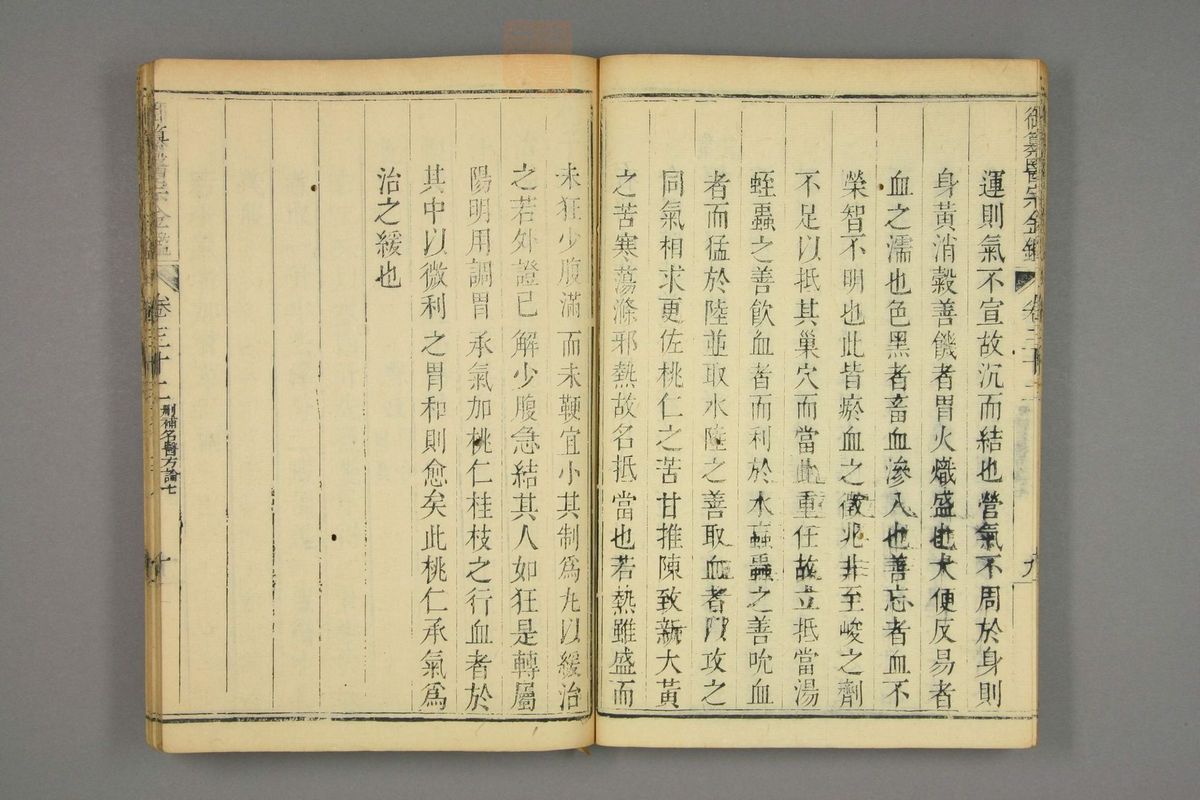 御纂醫宗金鑑 卷三十二 九
運則氣不宣故沉而結也營氣不周於身則
身黃消穀善饑者胃火熾盛也大便反易者
血之濡也色黑者畜血滲入也善忘者血不
榮智不明也此皆瘀血之徵兆非至峻之劑
不足以抵其巢穴而當此重任故立抵當湯
蛭蟲之善飲血者而利於水蝱蟲之善吮血
者而猛於陸並取水陸之善取血者以攻之
同氣相求更佐桃仁之苦甘推陳致新大黃
之苦寒蕩滌邪熱故名抵當也若熱雖盛而
未狂少腹滿而未鞕宜小其制為丸以緩治
之若外證已解少腹急結其人如狂是轉屬
陽明用調胃承氣加桃仁桂枝之行血者於
其中以微利之胃和則愈矣此桃仁承氣為
治之緩也
卷三十二 刪補名醫方論七 十